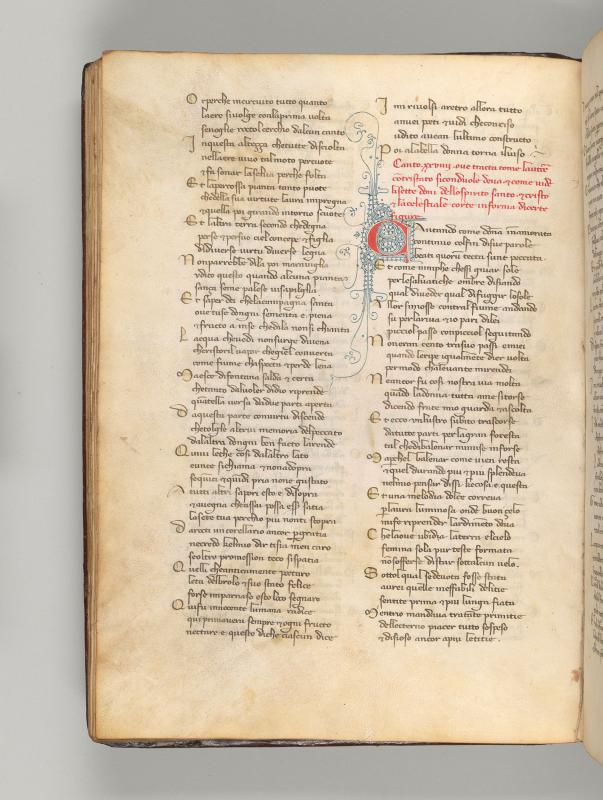 Or perche incircuito tutto quanto
laere sivolge conlaprima volta
senoglie rocto il cerchio dalcun canto
In questa altezza chetutte disciolta
nellaere vivo tal moto percuote
et fa sonar laselva perche folta
Et la percossa pianta tanto puote
chedella sua virtute laura impregna
et quella poi girando intorno scuote
Et laltra terra secondo chedegna
per se et per suo ciel concepe et figlia
didiverse virtu diverse legna
Non parrebbe dila poi maraviglia
udito questo quando alcuna pianta
sanza seme palese visapiglia
Et saper dei chelacampagna santa
ove tuse dogni sementa e piena
et fructo a inse chedila nonsi schianta
Lacqua chevedi nonsurge divena
cheristori vapor chegiel converta
come fiume chaspecta et perde lena
Ma esce difontana salda et certa
chetanto dalvoler didio riprende
quantella versa dadue parti aperta
Da questa parte convirtu discende
chetoglie altrui memoria delpeccato
dalaltra dogni ben facto larende
Quivi lethe cosi dalaltro lato
eunoe sichiama et nonadopra
sequici et quindi pria none gustato
A tutti altri sapori esto e disopra
et avegna chassai possa esser satia
lasete tua perchio piu nonti scopra
Darotti un corellario ancor per gratia
necredo kelmio dir tisia men caro
seoltre promession teco sispatia
Quelli chanticamente poetaro
leta deloro et suo stato felice
forse imparnaso esto loco sognaro
Qui fu innocente lumana radice
qui primavera sempre et ogni fructo
nectare e questo diche ciascun dice
I mi rivolsi aretro allora tutto
amiei poeti et vidi checonriso
udito avean lultimo constructo
Poi alabella donna torna ilviso
Canto xxviiij. ove tracta come lautore
contristato siconduole deva. et come vide
lisette doni dellospirito santo. et cristo
et la celestiale corte informa dicerte
figure
Cantando come donna innamorata
continuo colfin disue parole
beati quorum tecta sunt peccata
Et come nimphe chessi givan sole
per lesalvatiche ombre disiando
qual diveder qual difuggir losole
Allor simosse contral fiume andando
su perlariva et io pari dilei
picciol passo conpicciol seguitando
Non eran cento trasuo passi emiei
quando leripe igualmente dier volta
per modo chalevante mirendei
Ne ancor fu cosi nostra via molta
quando ladonna tutta ame sitorse
dicendo frate mio guarda et ascolta
Et ecco unlustro subito trascorse
datutte parti perlagran foresta
tal chedibalenar mimise inforse
Ma perchel balenar come vien resta
et quel durando piu et piu splendeva
nelmio pensar dissi checosa e questa
Et una melodia dolce correva
per laura luminosa onde buon çelo
mife riprender lardimento deva
Chelaove ubidia laterra elcielo
femina sola pur teste formata
nosofferse distar sottalcun velo
Sottol qual sedevota fosse stata
avrei quelle ineffabili delitie
sentite prima et piu lunga fiata
Mentrio mandava tratante primitie
delleterno piacer tutto sospeso
et disioso ancor apiu letitie.